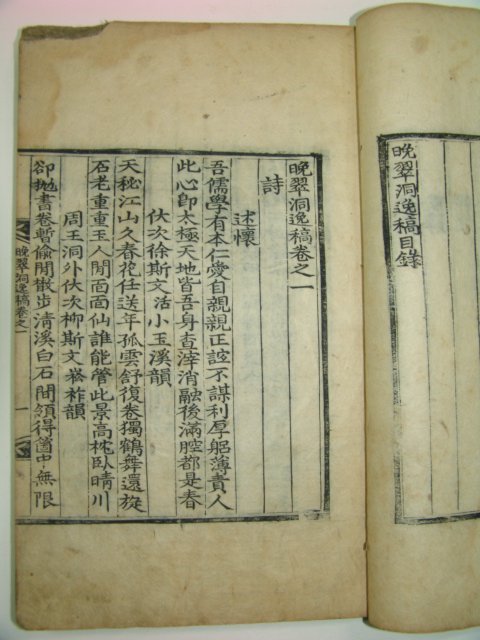 晩翠洞逸稿目錄
晩翠洞逸稿卷之一
詩
述懷
吾儒學有本仁愛自親親正誼不謀利厚躬薄責人
此心卽太極天地皆吾身查滓消融後滿腔都是春
伏次徐斯文活小玉溪韻
天秘江山久春花任送年孤雲舒復卷獨鶴舞還旋
石老重重玉人閒面面仙誰能管此景高枕臥晴川
周王洞外伏次柳斯文崧祚韻
卻抛書卷暫偸閒散步淸溪白石間領得箇中無限
晩翠洞逸稿卷之一
一